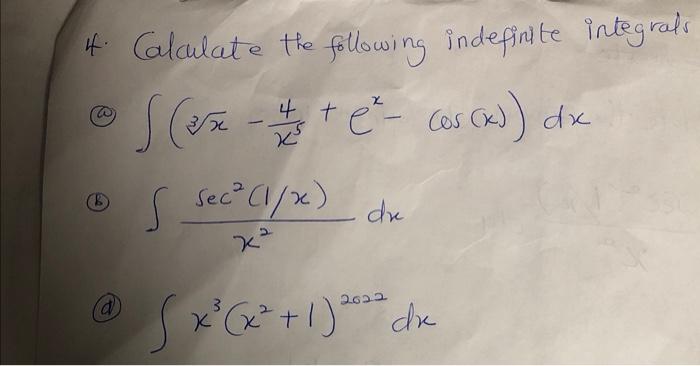 4. Calculate the following indefinite integrals
(a) ∫ (∛x - 4/x⁵ + eˣ - cos(x)) dx
(b) ∫ sec²(1/x) / x² dx
(d) ∫ x³(x²+1)²⁰²² dx